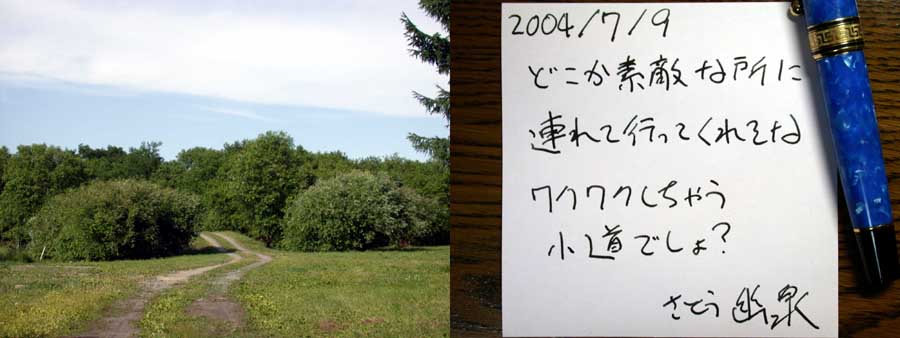 2004/7/9
どこか素敵な所に
連れて行ってくれそな
ワクワクしちゃう
小道でしょ?
さとう 幽泉